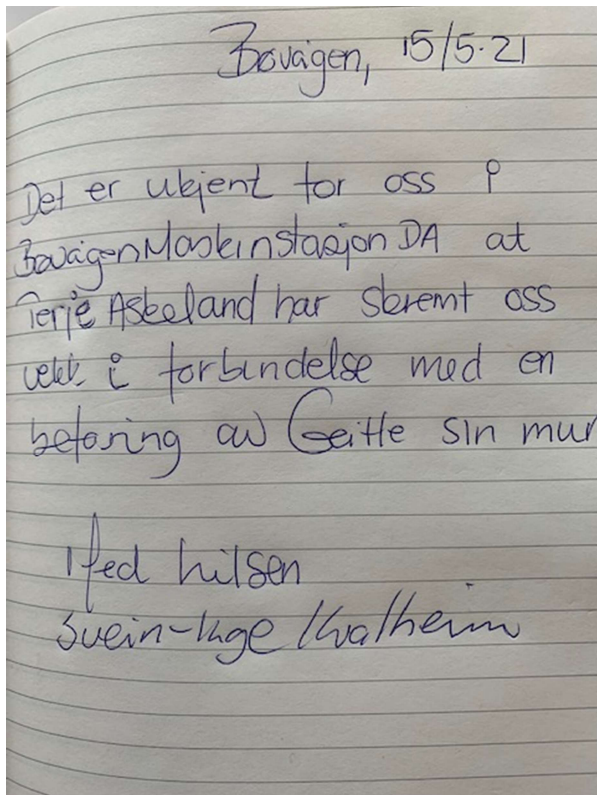 Bovågen, 15/5-21
Det er ukjent for oss i
Bovågen Maskinstasjon DA at
Terje Askeland har skremt oss
vekk i forbindelse med en
befaring av Geitle sin mur
Med hilsen
Svein-Inge Kvalheim